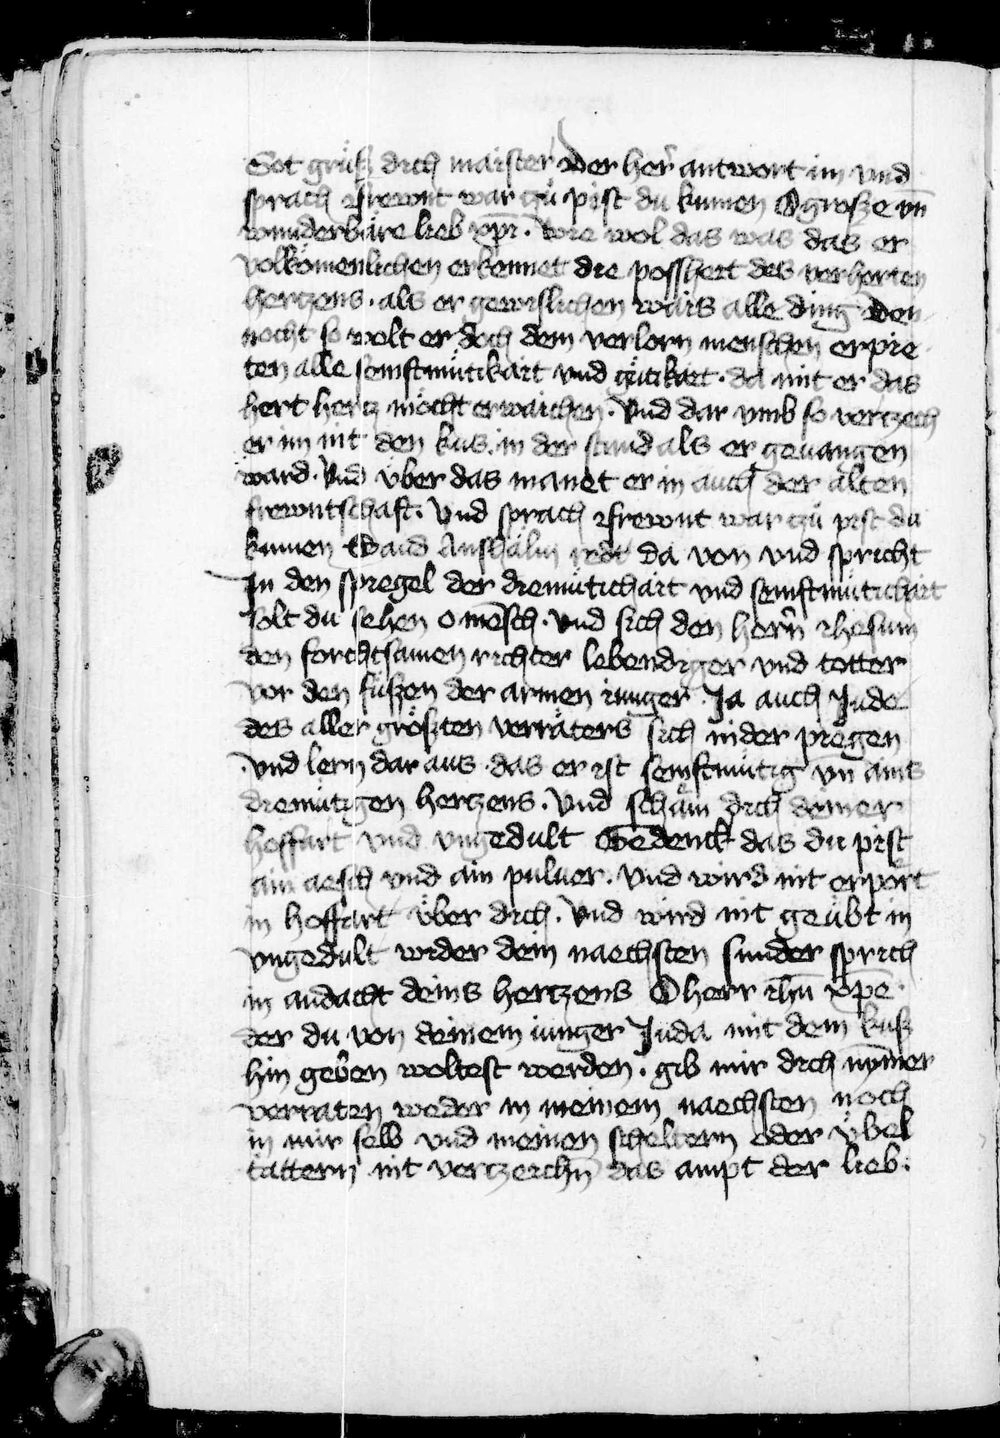 Got grüsz dich maister Der her̄ antwort im vnd
sprach ifrewnt war zů pist du kumen O grosze vn̄
wunderbäre lieb xp̄i. Wie wol das was das er
volkömenlichen erkennet die posshert des verherten
hertzens. als er gewislichen wais alle ding Den
nocht so wolt er doch dem verlorn menschen erpie
ten alle semftmütickait vnd gütickait. da mit er das
hert hertz möcht erwaichen. Vnd dar vmb so vertzech
er im nit den kus. in der stund als er geuangen
ward. Vnd über das manet er in auch der alten
frewntschaft. Vnd sprach ifrewnt war zů pist du
kumen Sand Anshälm redt da von vnd spricht
In den spiegel der diemütichait vnd semftmütichait
solt du sehen o mēsch. Vnd sich den herr̄n ihesum
den forchtsamen richter lebendiger vnd totter
vor den füszen der armen iunger. Ja auch Jude
des aller gröszten verräters sich nider piegen
Vnd lern dar aus das er ist semftmütig vn̄ ains
diemütigen hertzens. Vnd schäm dich deiner
hoffart vnd vngedult Gedenck das du pist
ain aesch vnd ain puluer. Vnd wird nit erpört
in hoffart über dich. Vnd wird nit geübt in
vngedult wider dein naechsten sunder sprich
in andacht deins hertzens O herr ih̄u xp̄e
der du von deinem iunger Juda mit dem kusz
hin geben woltest werden. gib mir dich nym̄er
verraten weder in meinem naechsten noch
in mir selb vnd meinen scheltern oder übel
tattern nit vertzeichn̄ das ampt der lieb: